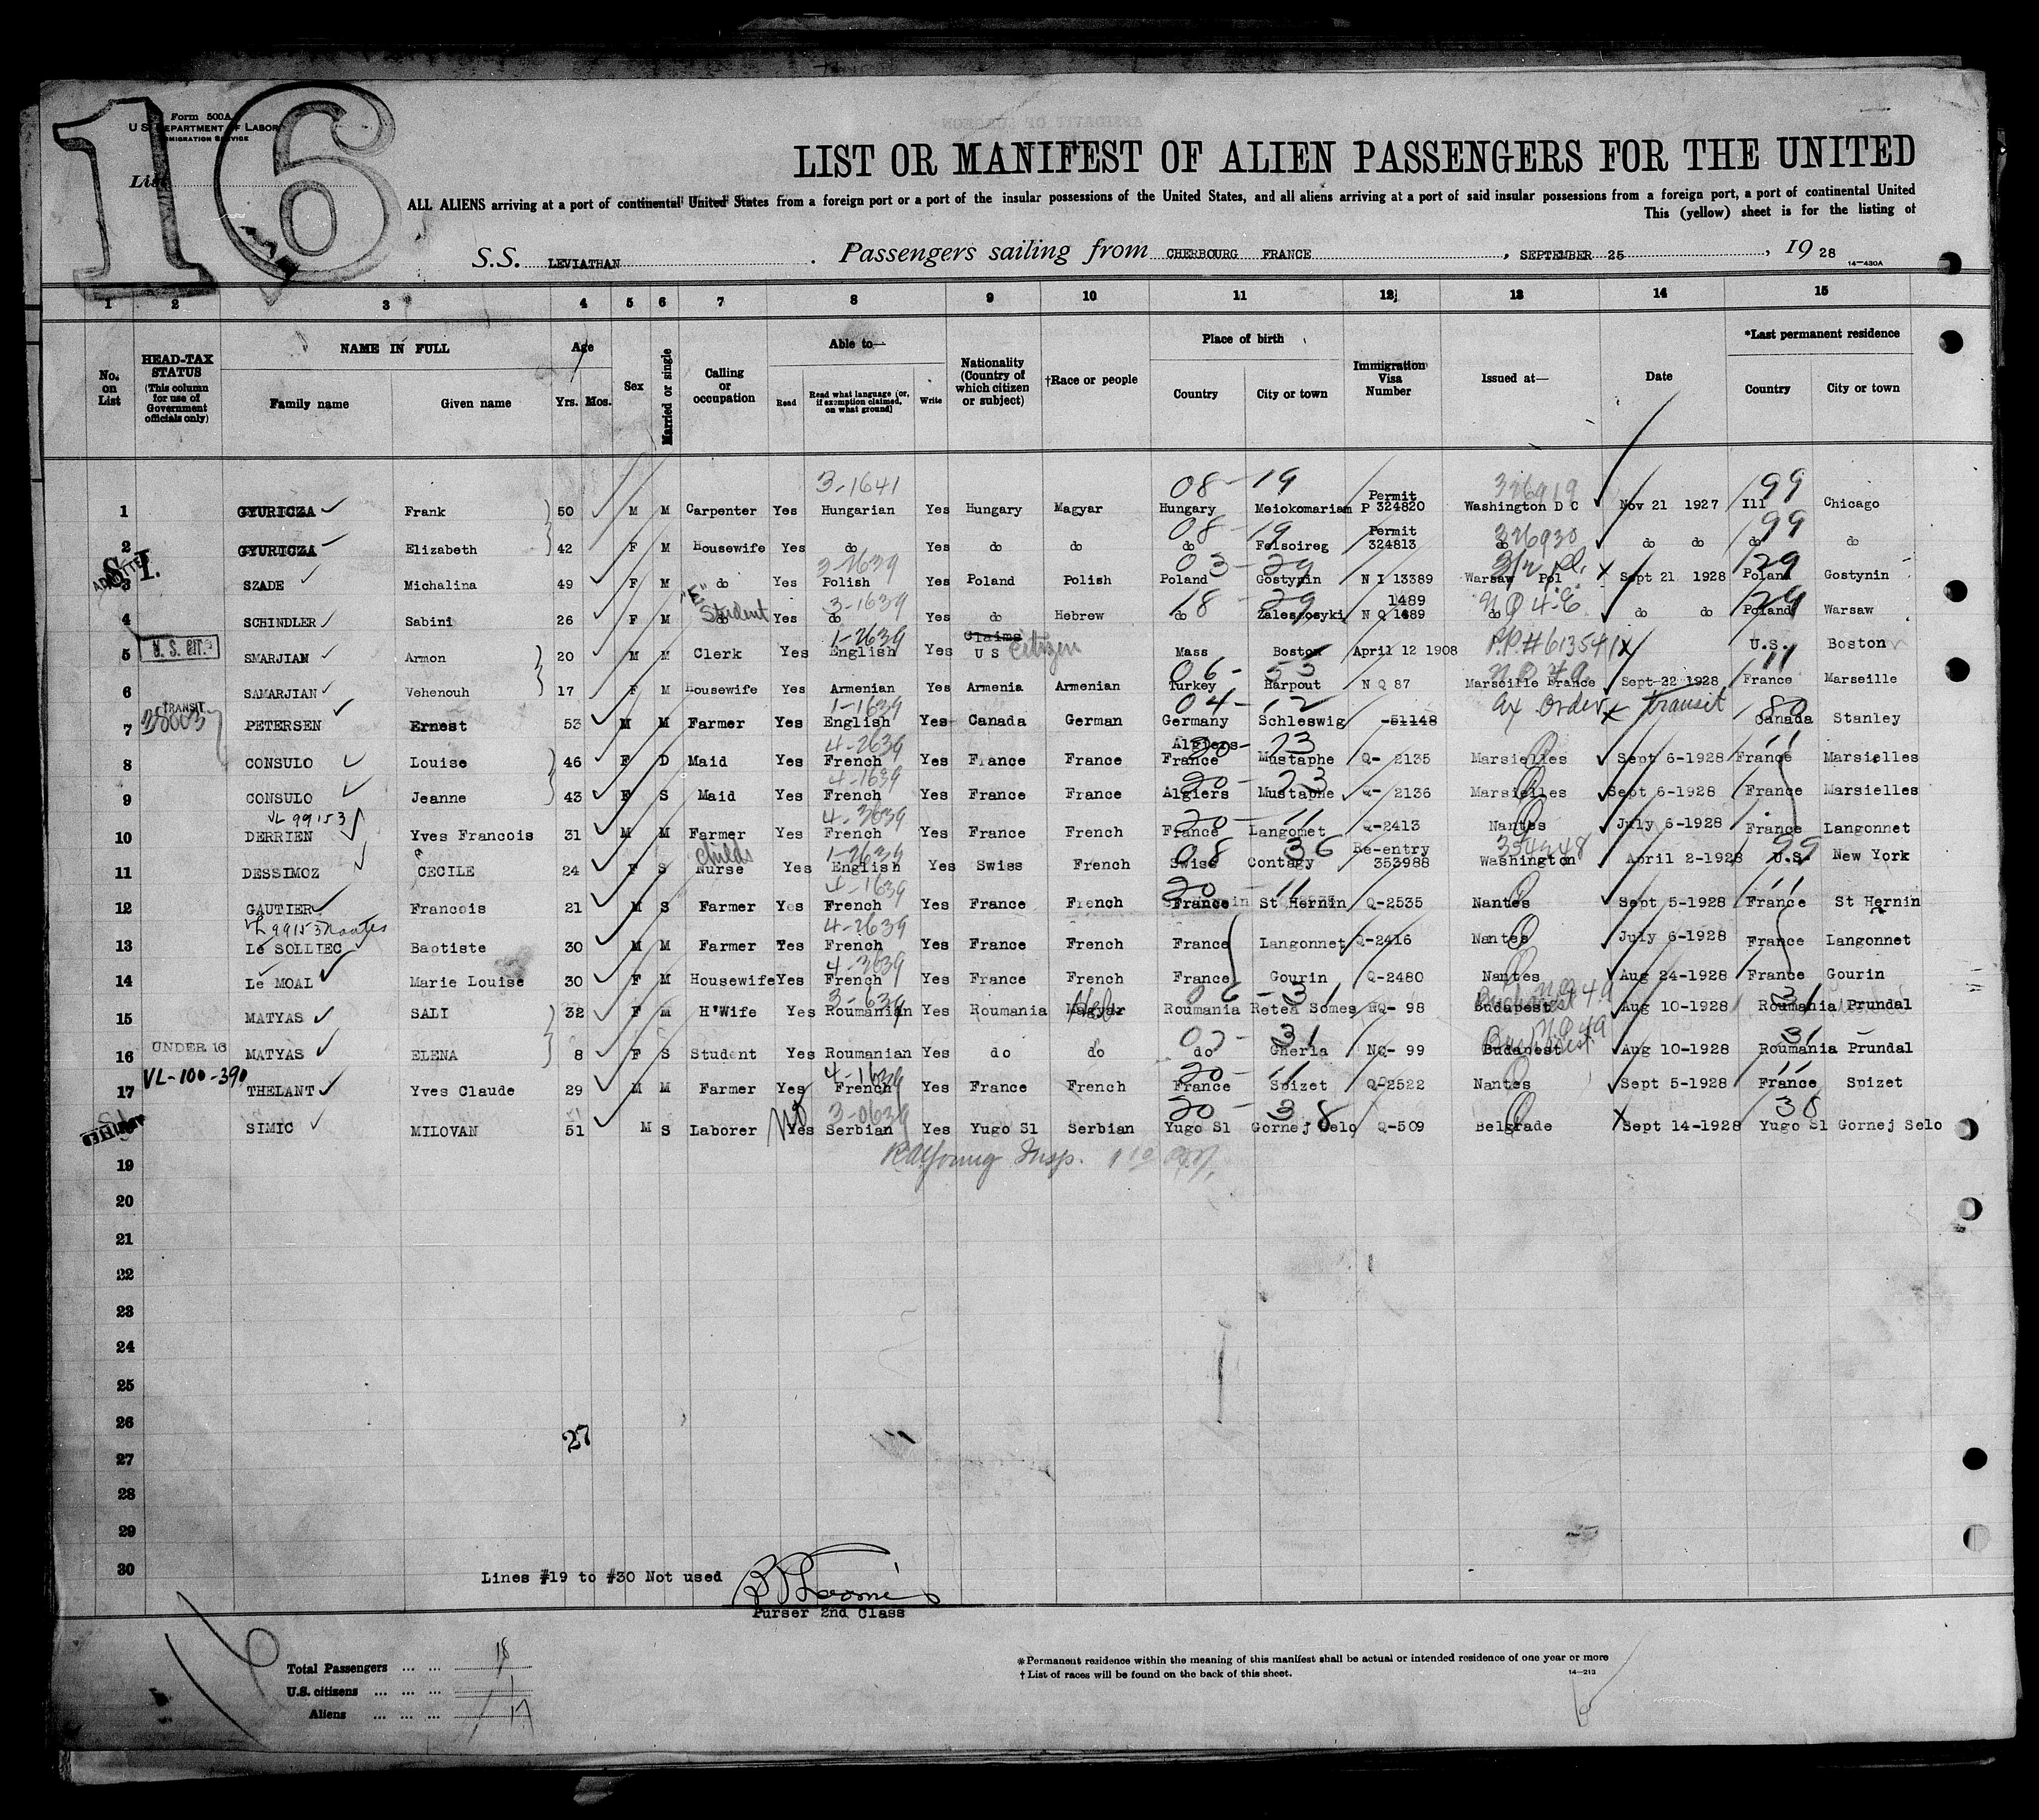 16
Form 500A
U S DEPARTMENT OF LABOR
IMMIGRATION SERVICE
List
LIST OR MANIFEST OF ALIEN PASSENGERS FOR THE UNITED
ALL ALIENS arriving at a port of continental United States from a foreign port or a port of the insular possessions of the United States, and all aliens arriving at a port of said insular possessions from a foreign port, a port of continental United
This (yellow) sheet is for the listing of
S.S. LEVIATHAN . Passengers sailing from CHERBOURG FRANCE , SEPTEMBER 25 , 19 28
14-430A
1 2 3 4 5 6 7 8 9 10 11 12 13 14 15
No. on List
HEAD-TAX STATUS (This column for use of Government officials only)
NAME IN FULL Family name Given name
Age Yrs. Mos.
Sex
Married or single
Calling or occupation
Able to— Read Read what language [or, if exemption claimed, on what ground] Write
Nationality (Country of which citizen or subject)
†Race or people
Place of birth Country City or town
Immigration Visa Number
Issued at—
Date
*Last permanent residence Country City or town
3-1641 08-19 Permit 326919 99
1 GYURICZA Frank 50 M M Carpenter Yes Hungarian Yes Hungary Magyar Hungary Meiokomariam P 324820 Washington D C Nov 21 1927 Ill Chicago
08-19 Permit 326920 99
2 GYURICZA Elizabeth 42 F M Housewife Yes do Yes do do do Felsoireg 324813 do do do do do
S.I. ADMITTED 3-2639 03-29 29
3 SZADE Michalina 49 F M do Yes Polish Yes Poland Polish Poland Gostynin N I 13389 Warsaw Pol Sept 21 1928 Poland Gostynin
"E" Student 3-1639 18-29 1489 N Q 4-E 29
4 SCHINDLER Sabini 26 F M do Yes do Yes do Hebrew do Zaleszosyki N Q 1489 do do do Poland Warsaw
U. S. CIT. 1-2639 Claims Citizen P.P.#613541
5 SMARJIAN Armon 20 M M Clerk Yes English Yes U S Mass Boston April 12 1908 U.S. Boston
06-53 11
6 SAMARJIAN Vehenouh 17 F M Housewife Yes Armenian Yes Armenia Armenian Turkey Harpout N Q 87 Marseille France Sept 22 1928 France Marseille
TRANSIT 1-1639 04-12 ex Order Transit 80
7 PETERSEN Ernest 53 M M Farmer Yes English Yes Canada German Germany Schleswig 51148 Canada Stanley
4-2639 Algiers 20-23 11
8 CONSULO Louise 46 F D Maid Yes French Yes France France France Mustaphe Q- 2135 Marsielles Sept 6-1928 France Marsielles
4-1639 20-23
9 CONSULO Jeanne 43 F S Maid Yes French Yes France France Algiers Mustaphe Q- 2136 Marsielles Sept 6-1928 France Marsielles
VL 99153 4-3639 20-11
10 DERRIEN Yves Francois 31 M M Farmer Yes French Yes France French France Langomet Q-2413 Nantes July 6-1928 France Langonnet
childs 1-2639 08 36 Re-entry 354248 99
11 DESSIMOZ CECILE 24 F S Nurse Yes English Yes Swiss French Swiss Contagy 353988 Washington April 2-1928 U.S. New York
4-1639 20-11 11
12 GAUTIER Francois 21 M S Farmer Yes French Yes France French France St Hernin Q-2535 Nantes Sept 5-1928 France St Hernin
VL 99153 Nantes 4-2639
13 Le SOLLIEC Baptiste 30 M M Farmer Yes French Yes France French France Langonnet Q-2416 Nantes July 6-1928 France Langonnet
4-3639
14 Le MOAL Marie Louise 30 F M Housewife Yes French Yes France French France Gourin Q-2480 Nantes Aug 24-1928 France Gourin
3-639 06-31 Bucharest 31
15 MATYAS SALI 32 F M H'Wife Yes Roumanian Yes Roumania Magyar Roumania Retea Somes NQ- 98 Budapest Aug 10-1928 Roumania Prundal
UNDER 16 31 Bucharest 31
16 MATYAS ELENA 8 F S Student Yes Roumanian Yes do do do Gherla NQ- 99 Budapest Aug 10-1928 Roumania Prundal
VL-100-390 4-1639 20-11 11
17 THELANT Yves Claude 29 M M Farmer Yes French Yes France French France Spizet Q-2522 Nantes Sept 5-1928 France Spizet
ADMITTED No 3-0639 20-38 38
SIMIC MILOVAN 51 M S Laborer Yes Serbian Yes Yugo Sl Serbian Yugo Sl Gornej Selo Q-509 Belgrade Sept 14-1928 Yugo Sl Gornej Selo
19 Insp.
20
21
22
23
24
25
26
27
27
28
29
30
Lines #19 to #30 Not used
Purser 2nd Class
Total Passengers ... ... 18
U.S. citizens ... ... ... 1
Aliens ... ... ... 17
*Permanent residence within the meaning of this manifest shall be actual or intended residence of one year or more
†List of races will be found on the back of this sheet.
14-213